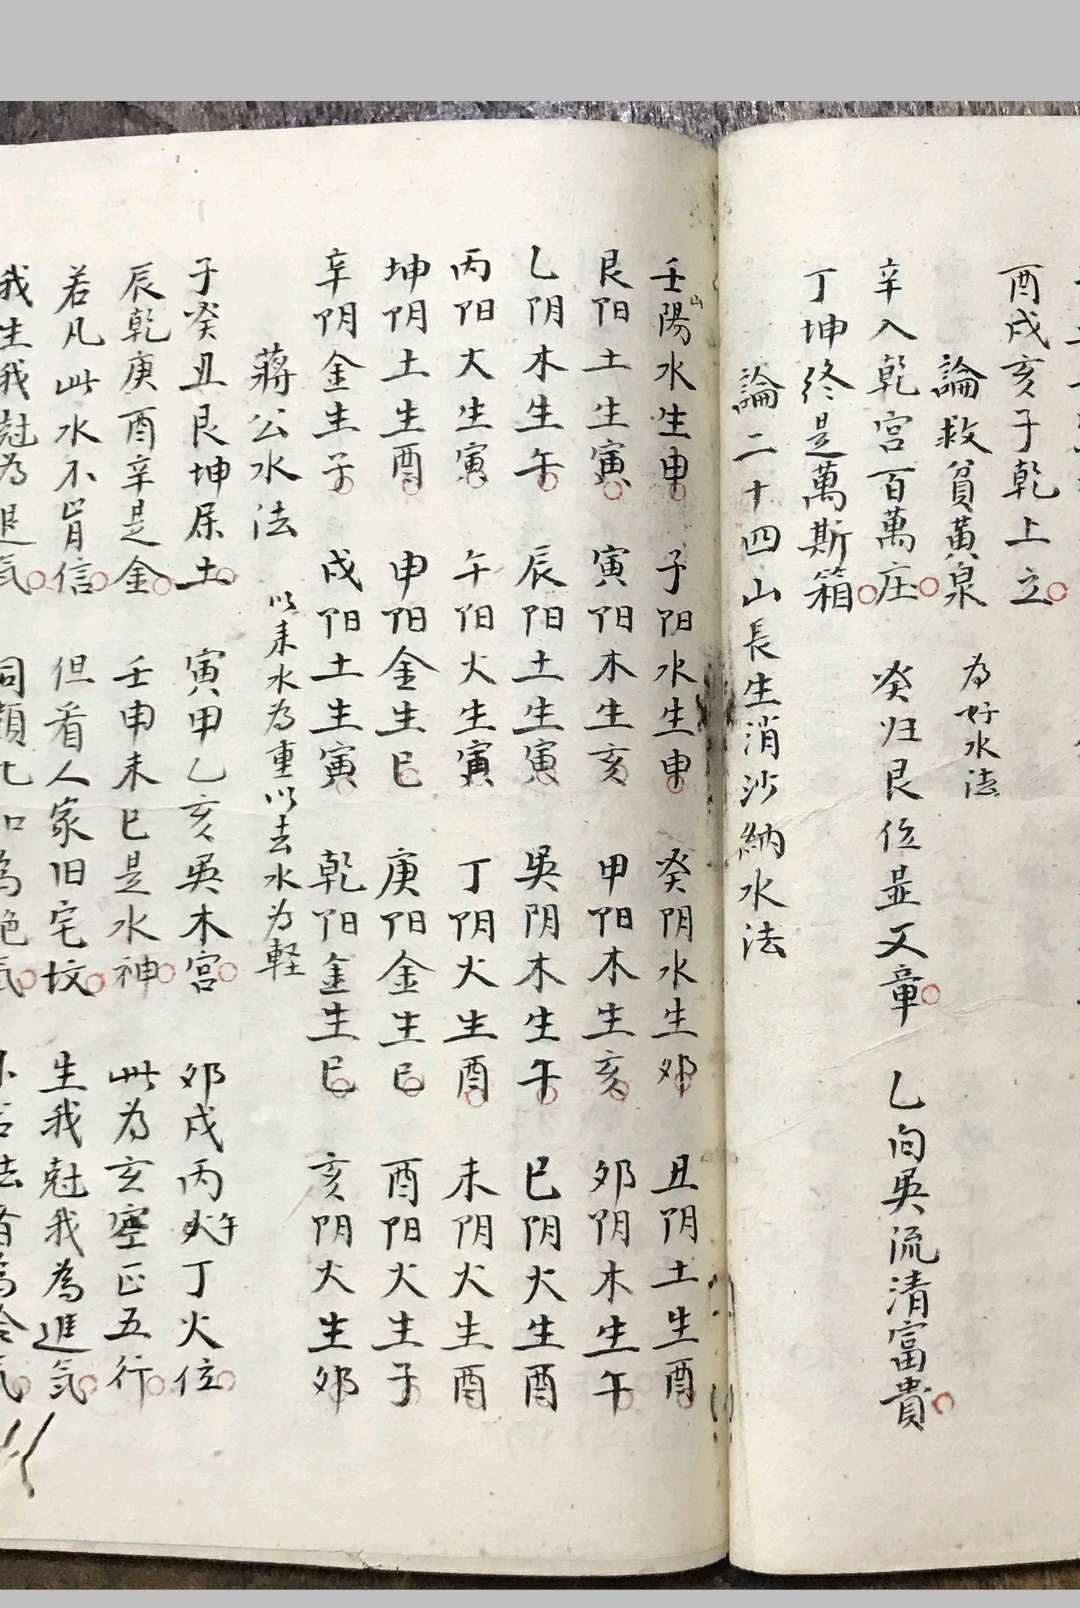 酉戌亥子乾上立
論救貧黃泉 為好水法
辛入乾宮百萬庄 癸归艮位显文章 乙向巽流清富貴
丁坤终是萬斯箱
論二十四山長生消沙納水法
壬山陽水生申 子阳水生申 癸阴水生卯 丑阴土生酉
艮阳土生寅 寅阳木生亥 甲阳木生亥 卯阴木生午
乙阴木生午 辰阳土生寅 巽阴木生午 巳阴火生酉
丙阳火生寅 午阳火生寅 丁阴火生酉 未阴火生酉
坤阴土生酉 申阳金生巳 庚阳金生巳 酉阳火生子
辛阴金生子 戍阳土生寅 乾阳金生巳 亥阴火生卯
蔣公水法 以来水為重以去水为軽
子癸丑艮坤屎土 寅甲乙亥巽木宮 卯戍丙火午丁火位
辰乾庚酉辛是金 壬申未巳是水神 此为玄空正五行
若凡此水不肯信 但看人家旧宅坟 生我尅我為進気
我生我尅為退気 同類比和為絶気